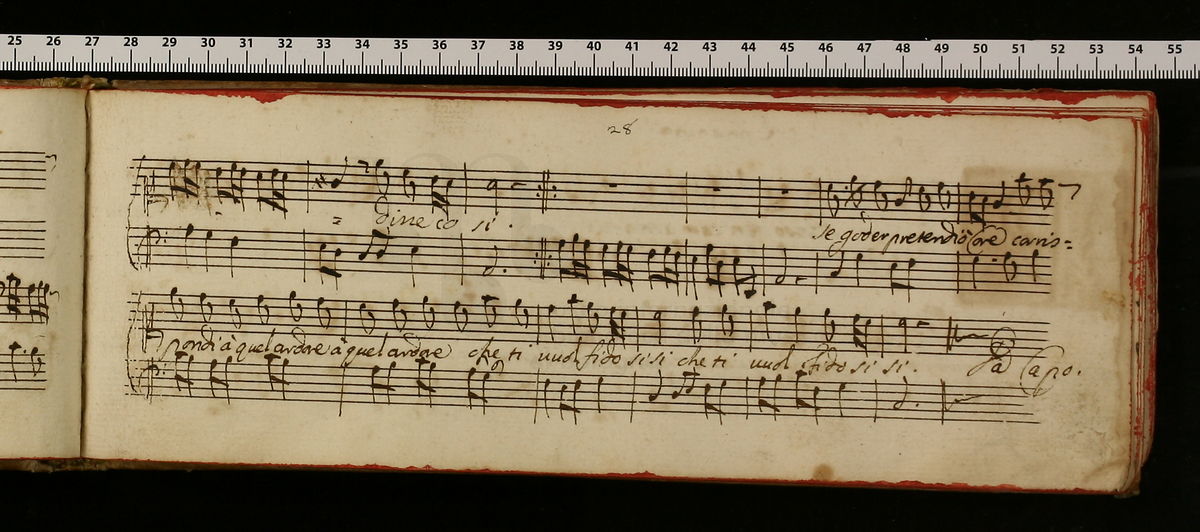 25 26 27 28 29 30 31 32 33 34 35 36 37 38 39 40 41 42 43 44 45 46 47 48 49 50 51 52 53 54 55
28
= dirre co si .
se goder pretendi ò core corris=
pondi à quel ardore à quel ardore che ti vuol fido si si che ti vuol fido si si . Da Capo .